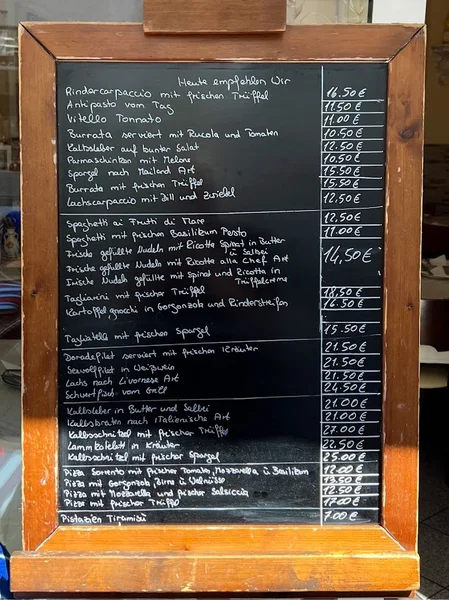 Heute empfehlen Wir
Rindercarpaccio mit frischen Trüffel 16.50€
Antipasto vom Tag 11.50€
Vitello Tonnato 11.00€
Burrata serviert mit Rucola und Tomaten 10.50€
Kalbsleber auf bunter Salat 12.50€
Parmaschinken mit Melone 10.50€
Spargel nach Mailand Art 15.50€
Burrata mit frischen Trüffel 15.50€
Lachscarpaccio mit Dill und Zwiebel 12,50€
Spaghetti ai Frutti di Mare 12.50€
Spaghetti mit frischen Basilikum Pesto 11.00€
Frische gefüllte Nudeln mit Ricotta Spinat in Butter
ü Salbei
Frische gefüllte Nudeln mit Ricotta alla Chef Art 14,50€
Frische Nudeln gefüllte mit Spinat und Ricotta in
Trüffelcreme
Tagliarini mit frischer Trüffel 18.50€
Kartoffel gnocchi in Gorgonzola und Rinderstreifen 16.50€
Tagliatelle mit frischen Spargel 15.50€
Doradefilet serviert mit frischen Kräuter 21.50€
Seewolffilet in Weißwein 21.50€
Lachs nach Livornese Art 21.50€
Schwertfisch vom Grill 24.50€
Kalbsleber in Butter und Salbei 21.00€
Kalbsbraten nach italienische Art 21.00€
Kalbsschnitzel mit frischer Trüffel 27.00€
Lammkotelett in Kräuter 22.50€
Kalbsschnitzel mit frischer Spargel 25.00€
Pizza Sorrento mit frischer Tomaten, Mozzarella ü Basilikum 12.00€
Pizza mit Gorgonzola Birne ü Walnüsse 13.50€
Pizza mit Mozzarella und frischer Salsiccia 12.50€
Pizza mit frischer Trüffel 17.00€
Pistazien Tiramisü 7.00€